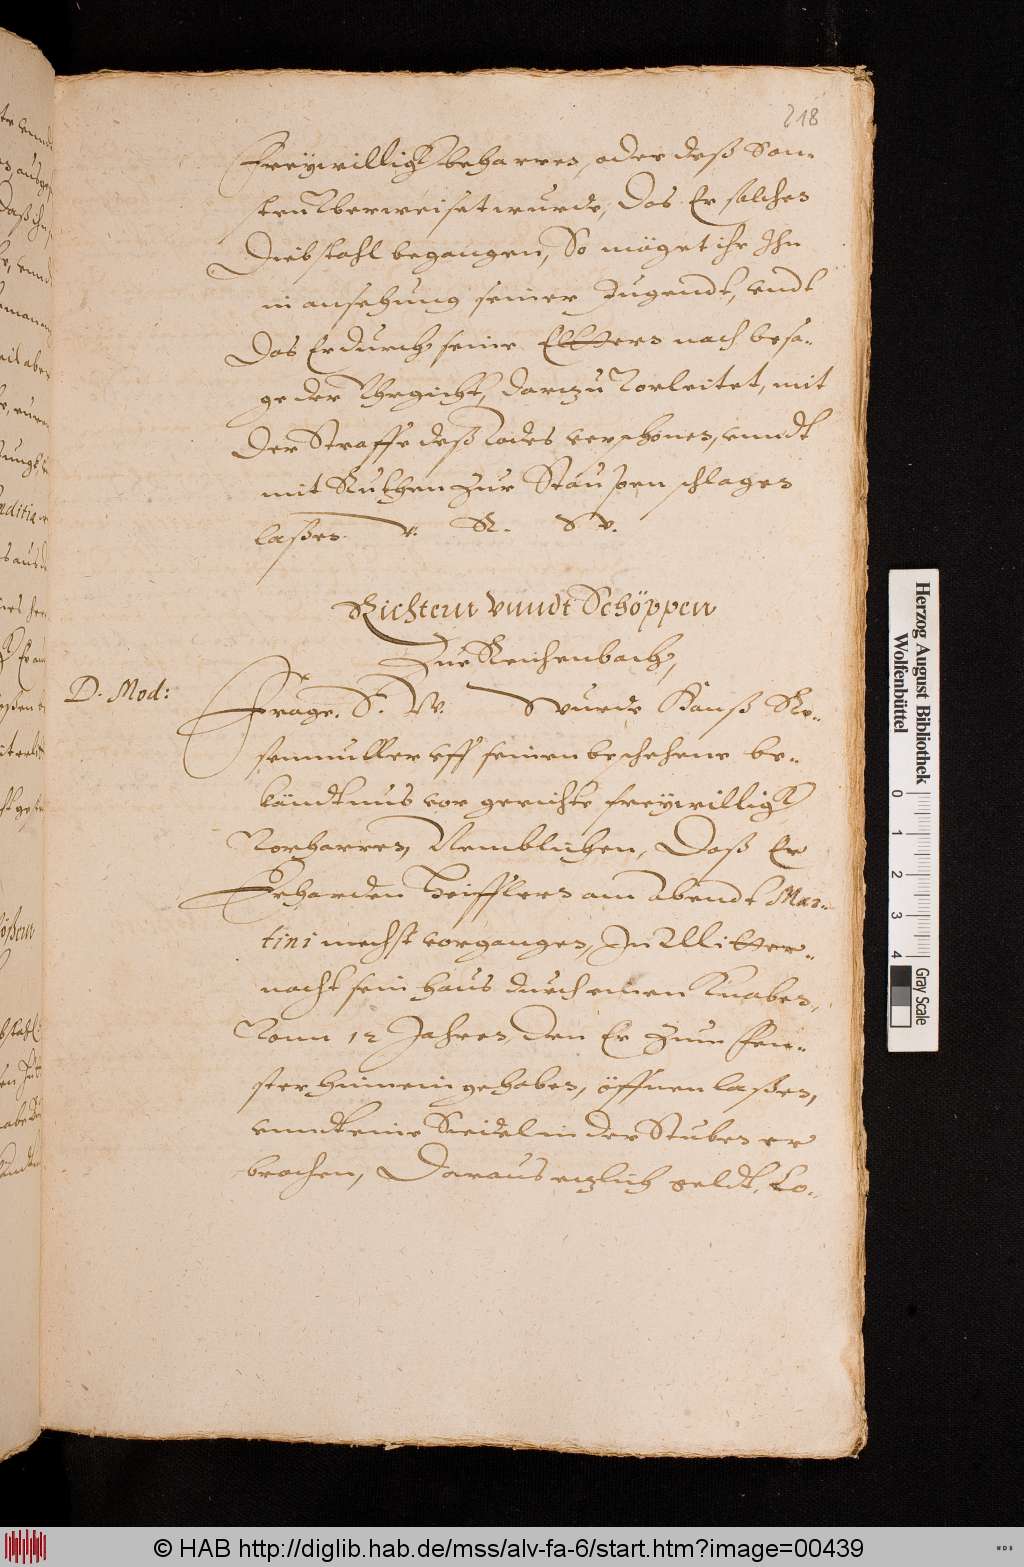 218
Freywilligk beharren, oder deß Son-
sten Uberweiset wurde, Das Er solches
Diebstahl begangen, So möget ihr Ihn
in ansehung seiner Jugendt, undt
Das Er durch seine Eltern nach besa-
ge der Uhrgicht, darzu Vorleitet, mit
Der Straffe deß Todes verschonen, unndt
mit Ruthen zur Staupen schlagen
laßen. v. R. W.
Richtern Vnndt Schöppen
Zue Reichenbach,
D. Mod:
Frage. S. W. Wurde Hanß Ro-
senmuller uff seinen beschehene be-
kändtnus vor gerichte freywilligk
Vorharren, Nemblichen, Daß Er
Erharden am abendt Mar-
tini nechst vorgangen, In Mitter-
nacht sein Haus durch einen Knaben,
Vonn 12 Jahren, den Er zum Fen-
ster hinnein gehoben, öffnen laßen,
unndt eine Siedel in der Stuben er
brochen, Daraus etzlich geldt, Lo-
Herzog August Bibliothek
Wolfenbüttel
0 1 2 3 4
Gray Scale
© HAB http://diglib.hab.de/mss/alv-fa-6/start.htm?image=00439